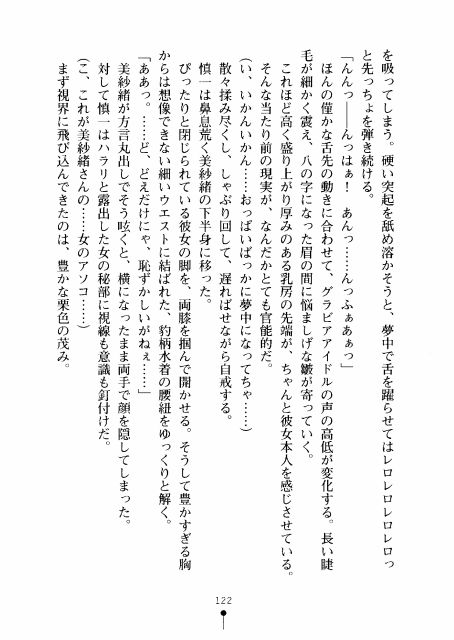 を吸ってしまう。硬い突起を舐め溶かそうと、夢中で舌を躍らせてはレロレロレロレロっ
と先っちょを弾き続ける。
「んんっ――んっはぁ！　あんっ……んっふぁあぁっ」
ほんの僅かな舌先の動きに合わせて、グラビアアイドルの声の高低が変化する。長い睫
毛が細かく震え、八の字になった眉の間に悩ましげな皺が寄っていく。
これほど高く盛り上がり厚みのある乳房の先端が、ちゃんと彼女本人を感じさせている。
そんな当たり前の現実が、なんだかとても官能的だ。
（い、いかんいかん……おっぱいばっかに夢中になってちゃ……）
散々揉み尽くし、しゃぶり回して、遅ればせながら自戒する。
慎一は鼻息荒く美紗緒の下半身に移った。
ぴったりと閉じられている彼女の脚を、両膝を掴んで開かせる。そうして豊かすぎる胸
からは想像できない細いウエストに結ばれた、豹柄水着の腰紐をゆっくりと解く。
「ああっ。……ど、どえだけにゃ、恥ずかしいがねぇ……」
美紗緒が方言丸出しでそう呟くと、横になったまま両手で顔を隠してしまった。
対して慎一はハラリと露出した女の秘部に視線も意識も釘付けだ。
（こ、これが美紗緒さんの……女のアソコ……）
まず視界に飛び込んできたのは、豊かな栗色の茂み。
122